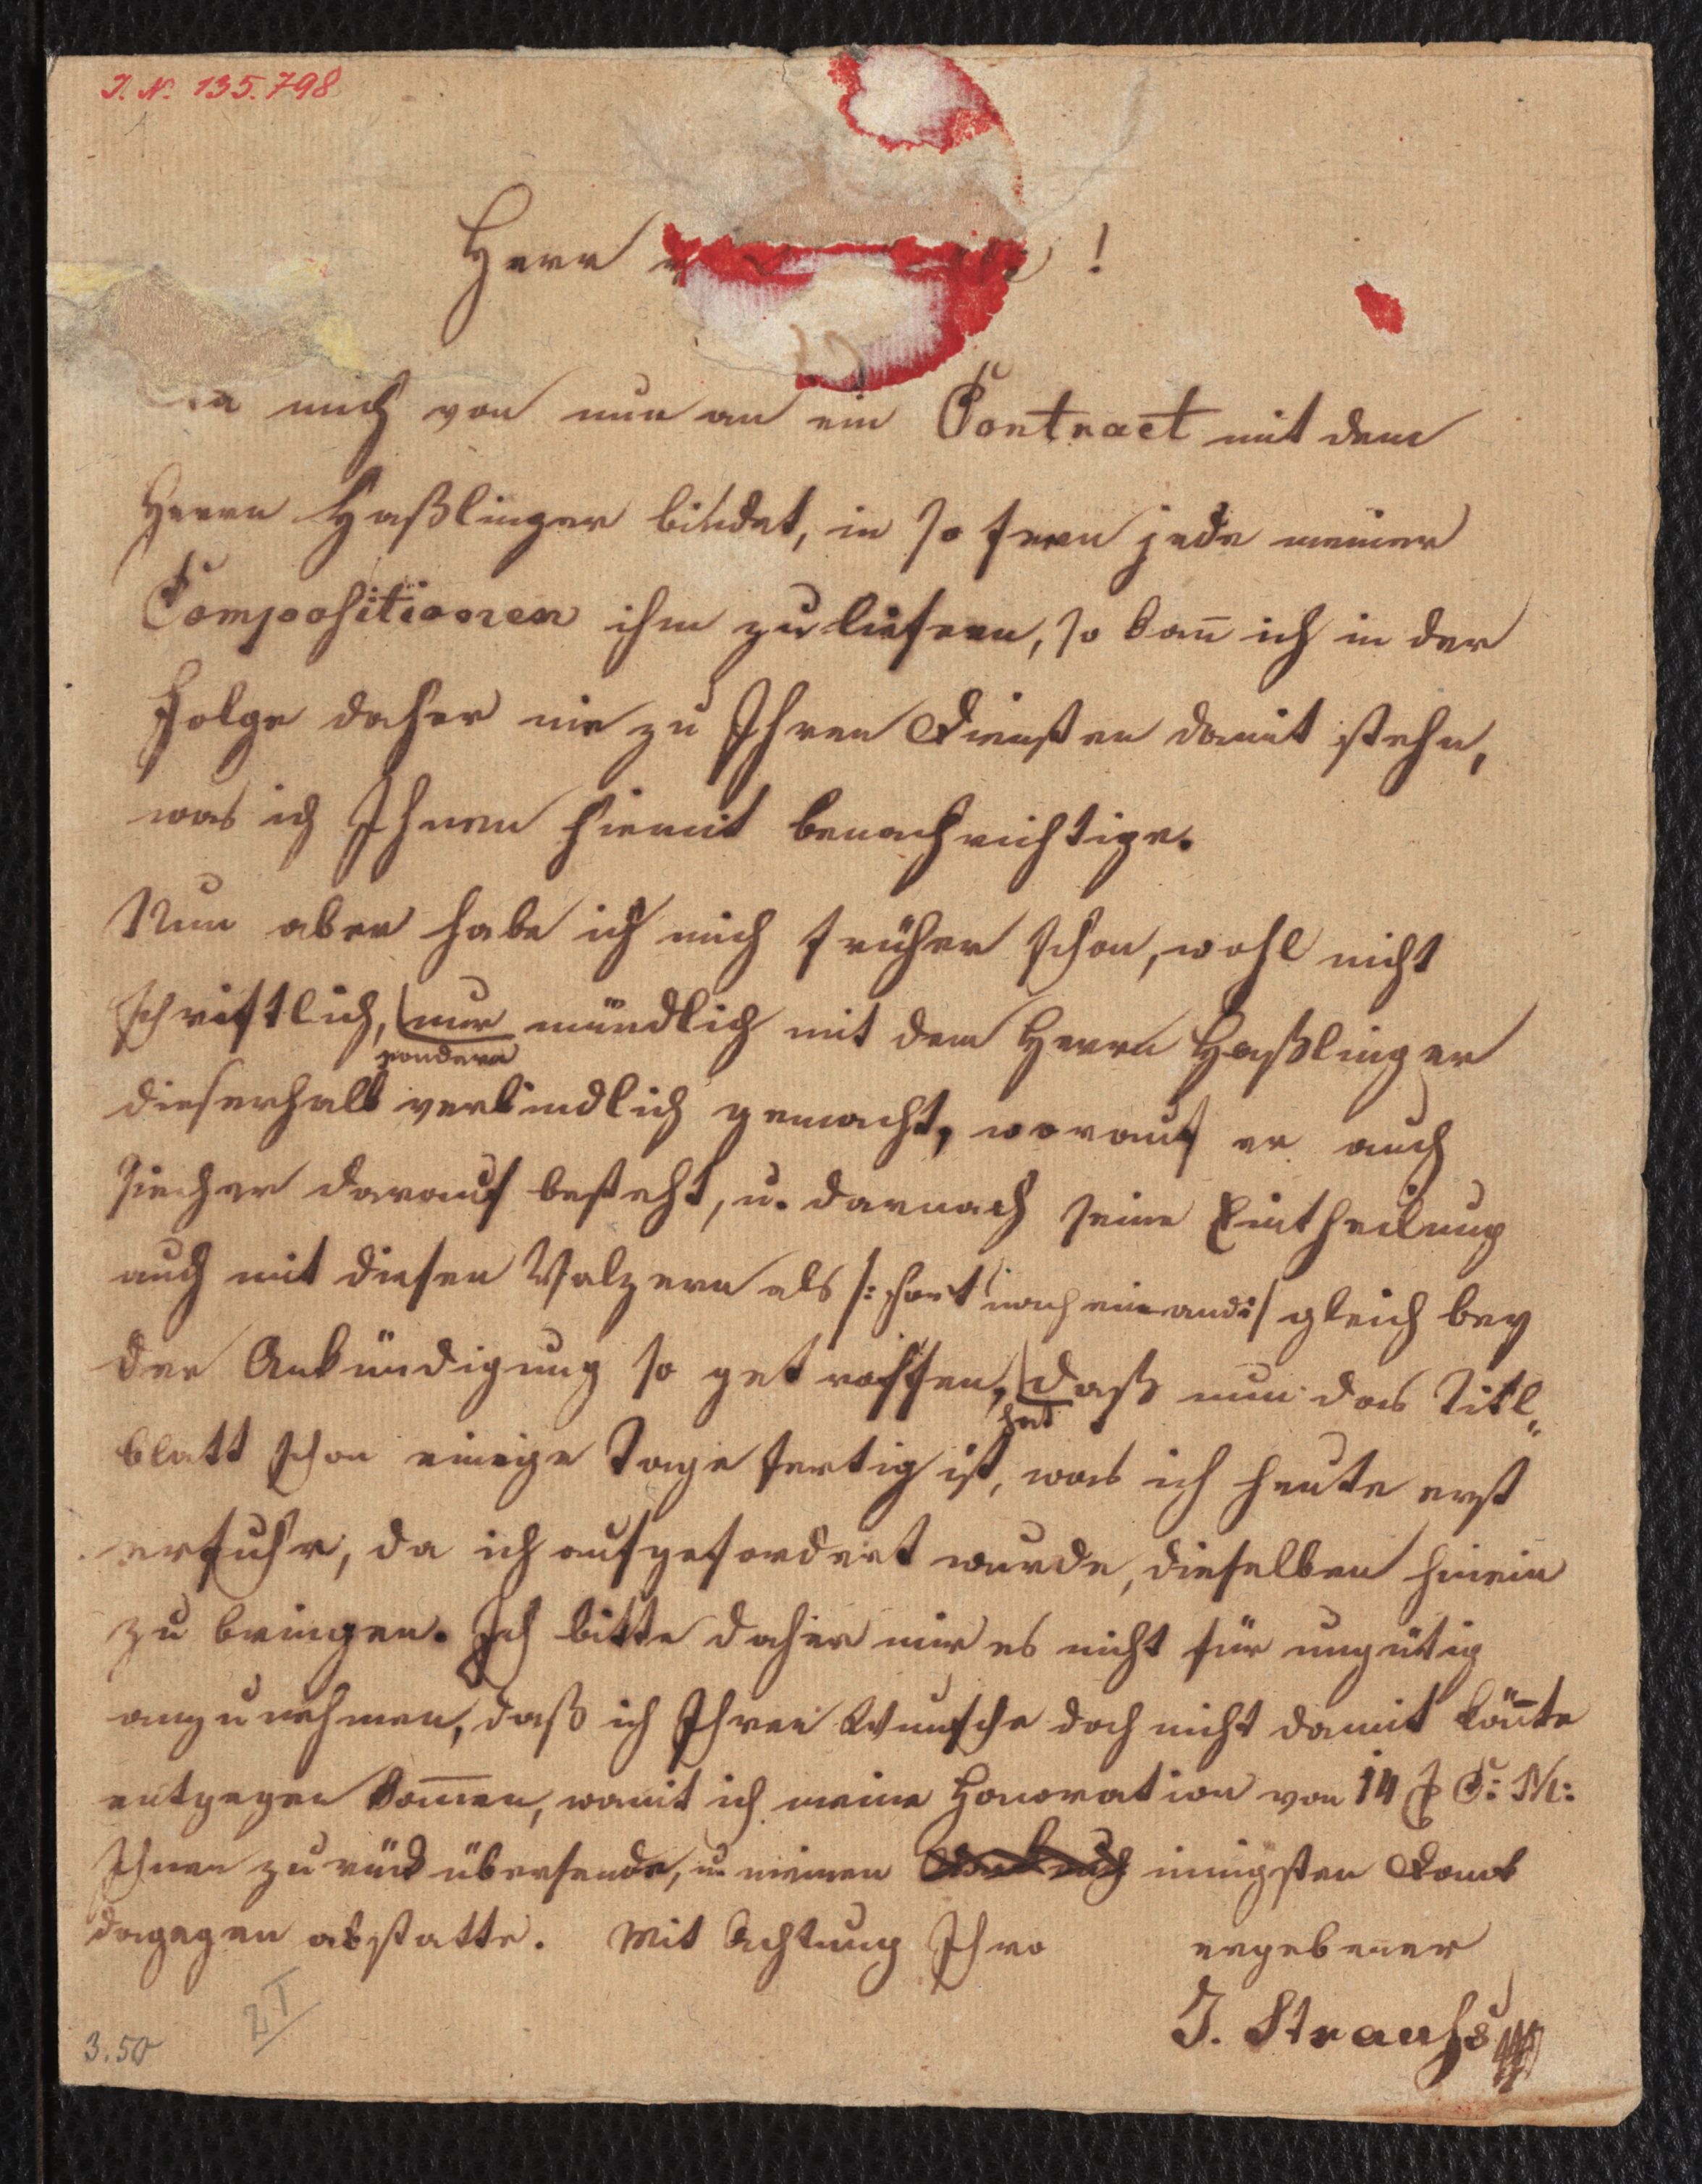 I. N. 135.798
Herr !
mich von nun an ein Contract mit dem
Herrn Haßlinger bindet, in so fern jede meiner
Compositionen ihm zu liefern, so kan̄ ich in der
Folge daher nie zu Ihren Diensten damit stehn,
was ich Ihnen hiemit benachrichtige.
Nun aber habe ich mich früher schon, wohl nicht
schriftlich, nur mündlich mit dem Herrn Haßlinger
sondern
dieserhalb verbindlich gemacht, worauf er auch
siecher darauf besteht, u. darnach seine Eintheilung
auch mit diesen Walzern als /: fort nach einand :/ gleich bey
der Ankündigung so getroffen, daß nun das Titl„
hat
blatt schon einige Tage fertig ist, was ich heute erst
erfuhr, da ich aufgefordert wurde, dieselben hinein
zu bringen. Ich bitte daher mir es nicht für ungütig
anzunehmen, daß ich Ihren Wunsche doch nicht damit kön̄te
entgegen kom̄en, womit ich meine Honoration von 14 # C: M:
Ihnen zurück übersende, u meinen innigsten Dank
dagegen abstatte. Mit Achtung Ihro ergebener
J. Strauhs
2T
3.50